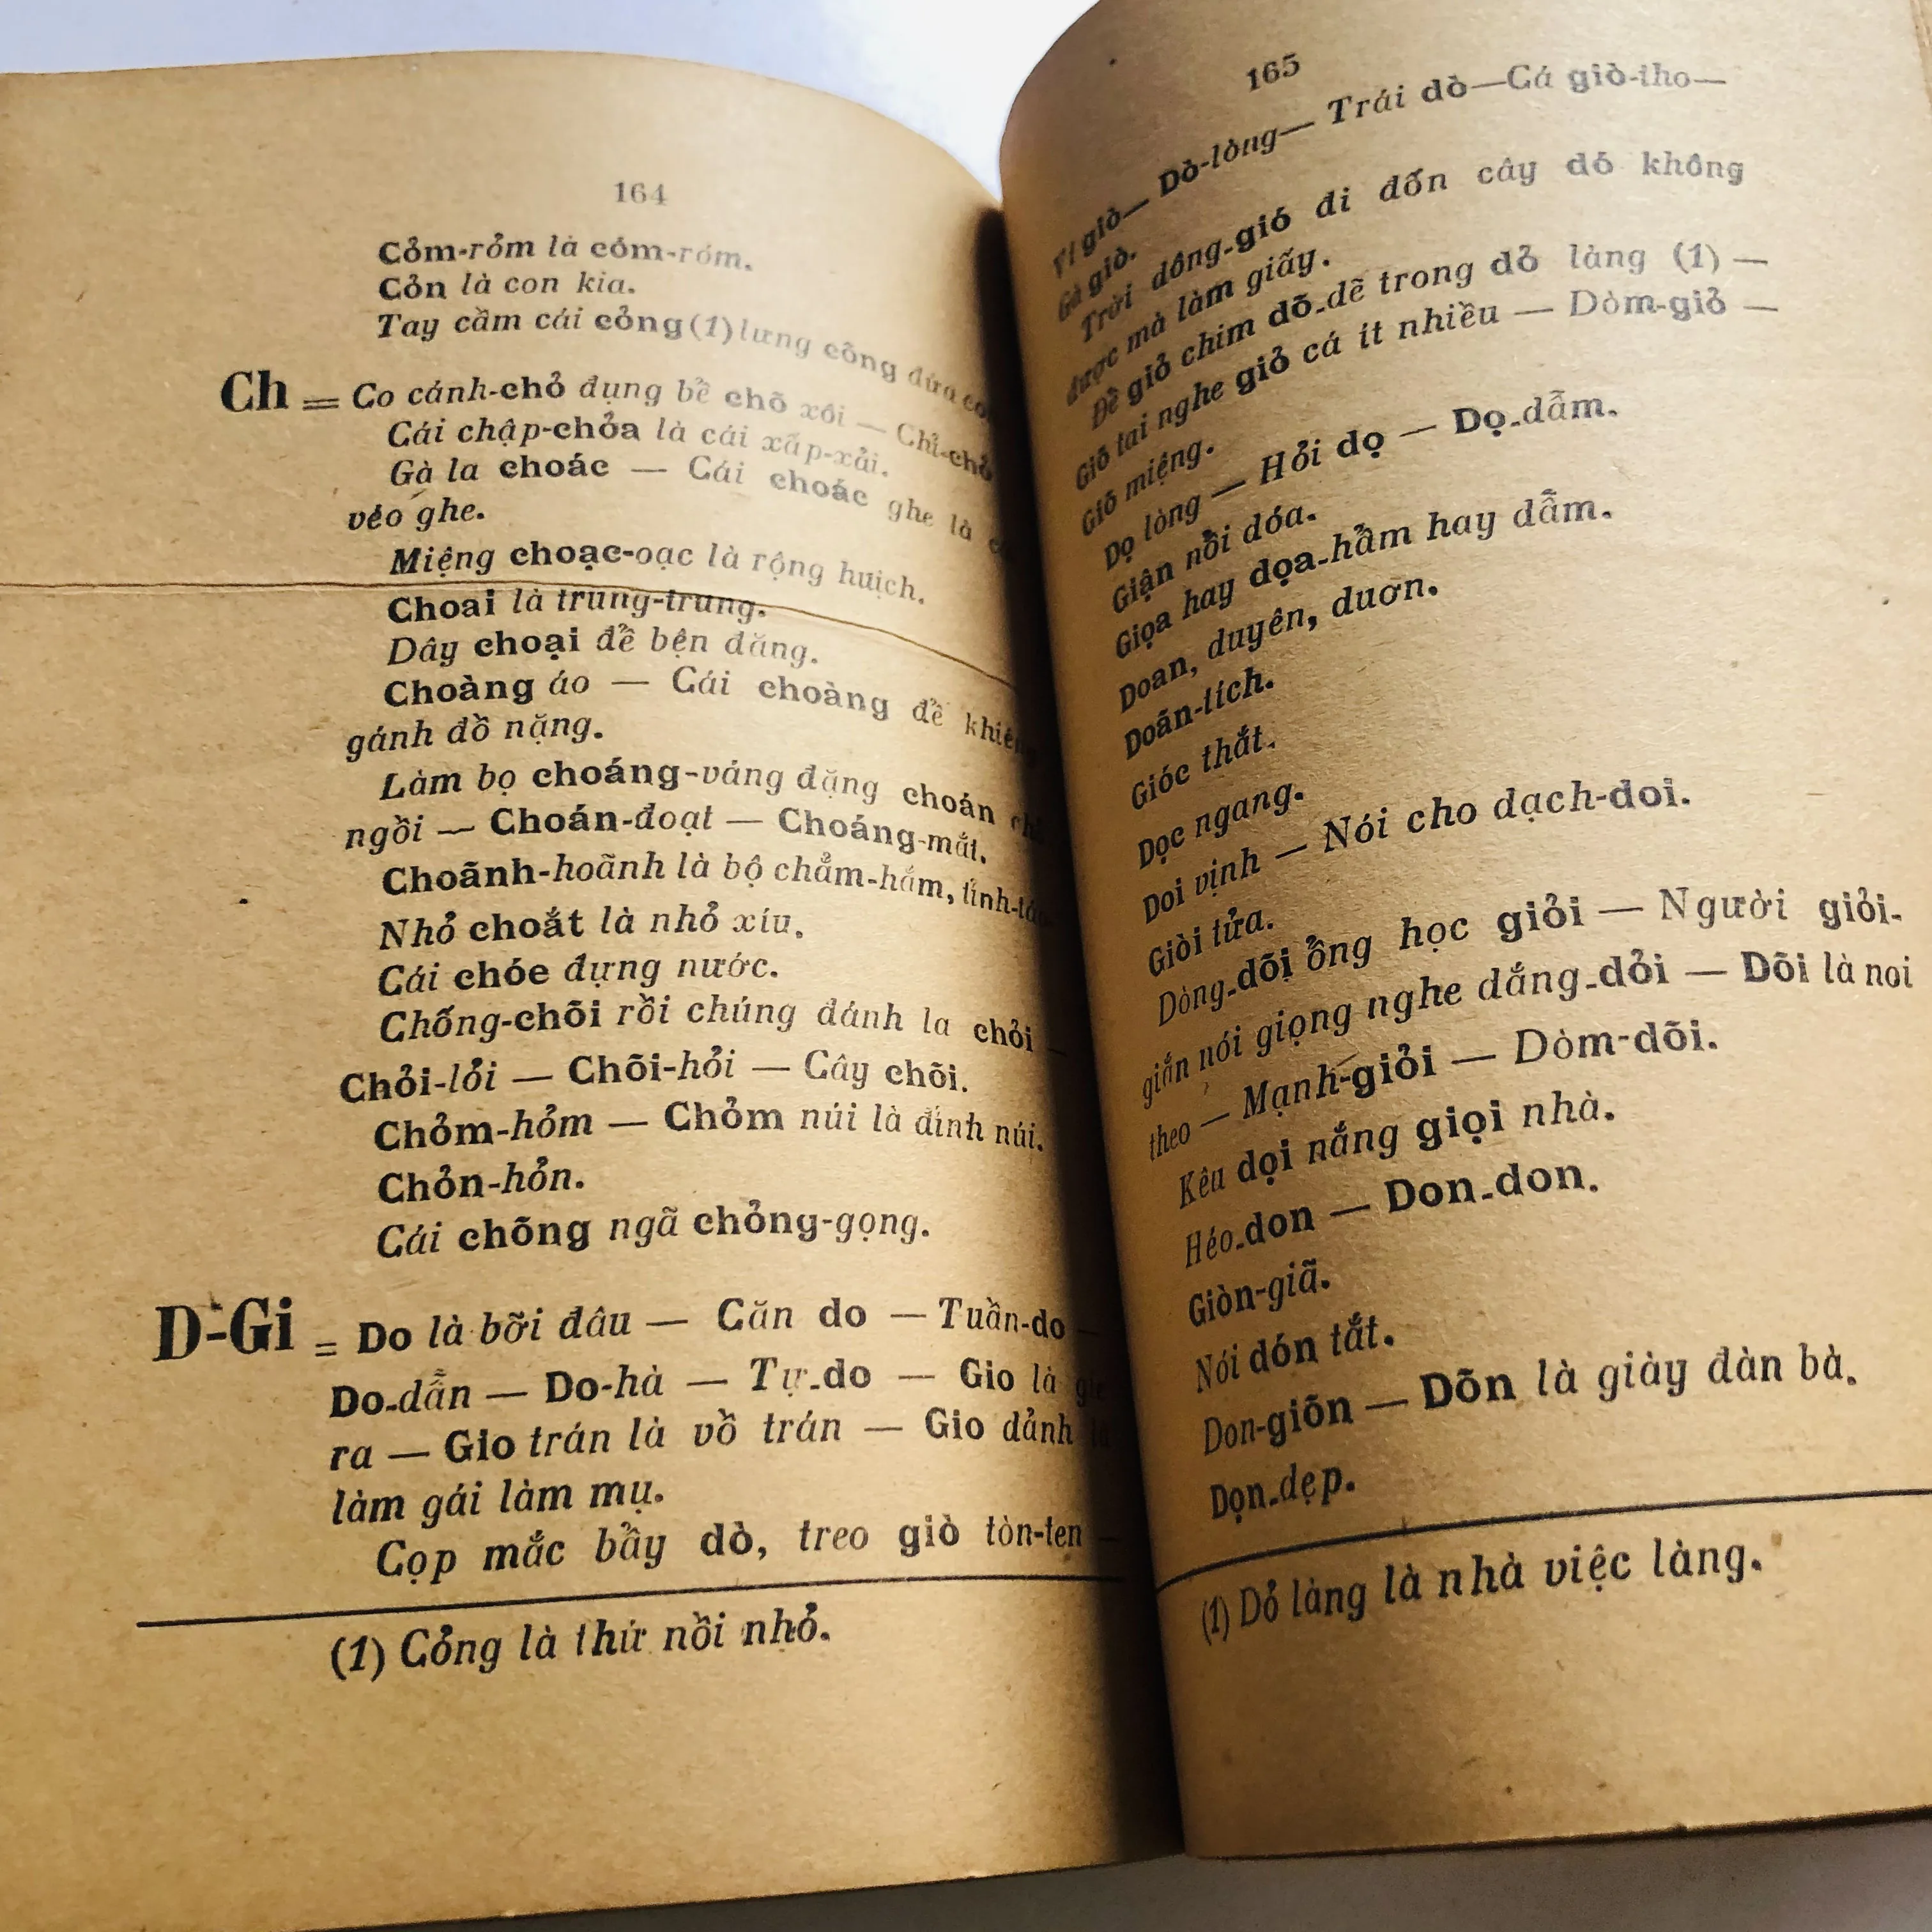 164
Cỏm-rỏm là cỏm-róm.
Cỏn là con kia.
Tay cầm cái cỏng (1) lưng cõng đứa
Ch = Co cánh-chỏ đụng bể chõ xôi — Chỉ-chỏ
Cái chập-chỏa là cái xấp-xải.
Gà la choác — Cái choác ghe là
vẻo ghe.
Miệng choạc-oạc là rộng huịch.
Choai là trung-trung.
Dây choại để bện đăng.
Choàng áo — Cái choàng để khiêng
gánh đồ nặng.
Làm bọ choáng-váng đặng choán
ngồi — Choán-đoạt — Choáng-mắt.
Choãnh-hoãnh là bộ chẳm-hẳm,
Nhỏ choắt là nhỏ xíu.
Cái chóe đựng nước.
Chống-chõi rồi chúng đánh la chỏi —
Chỏi-lỏi — Chõi-hỏi — Cây chõi.
Chỏm-hỏm — Chỏm núi là đỉnh núi.
Chỏn-hỏn.
Cái chõng ngã chỏng-gọng.
D-Gi = Do là bỡi đâu — Căn do — Tuần-do —
Do-dẫn — Do-hà — Tự-do — Gio là
ra — Gio trán là vồ trán — Gio dảnh
làm gái làm mụ.
Cọp mắc bẫy dò, treo giò tòn-ten —
(1) Cỏng là thứ nồi nhỏ.
165
Vì giò — Dò-lòng — Trái dò — Cá giò-tho —
Gà giò.
Trời dông-gió đi đốn cây dó không
được mà làm giấy.
Để giỏ chim dõ-dẽ trong dỏ làng (1) —
Giỏ tai nghe giỏ cá ít nhiều — Dòm-giỏ —
Giỏ miệng.
Dọ lòng — Hỏi dọ — Dọ-dẫm.
Giận nồi dóa.
Giọa hay dọa-hẩm hay dẫm.
Doan, duyên, duơn.
Doãn-tích.
Gióc thắt.
Dọc ngang.
Doi vịnh — Nói cho dạch-doi.
Giòi tửa.
Dòng-dõi ổng học giỏi — Người giỏi-
giắn nói giọng nghe dắng-dỏi — Dõi là noi
theo — Mạnh-giỏi — Dòm-dõi.
Kêu dọi nắng giọi nhà.
Héo-don — Don-don.
Giòn-giã.
Nói dón tắt.
Don-giõn — Dõn là giày đàn bà.
Dọn-dẹp.
(1) Dỏ làng là nhà việc làng.